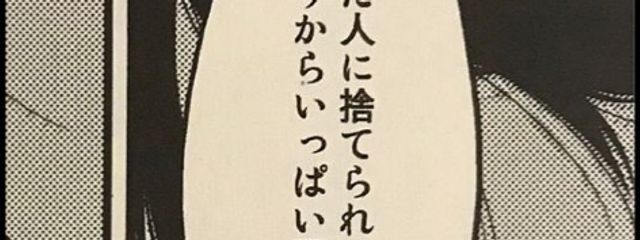 た人に捨てられ
からいっぱい